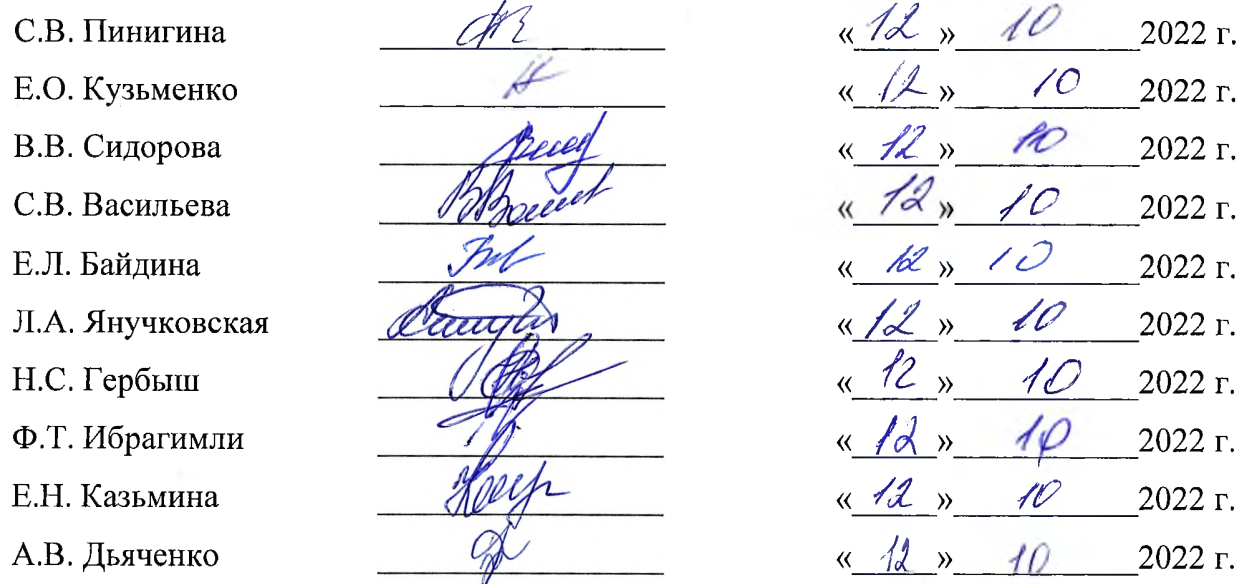 С.В. Пинигина «12» 10 2022 г.
Е.О. Кузьменко «12» 10 2022 г.
В.В. Сидорова «12» 10 2022 г.
С.В. Васильева «12» 10 2022 г.
Е.Л. Байдина «12» 10 2022 г.
Л.А. Янучковская «12» 10 2022 г.
Н.С. Гербыш «12» 10 2022 г.
Ф.Т. Ибрагимли «12» 10 2022 г.
Е.Н. Казьмина «12» 10 2022 г.
А.В. Дьяченко «12» 10 2022 г.